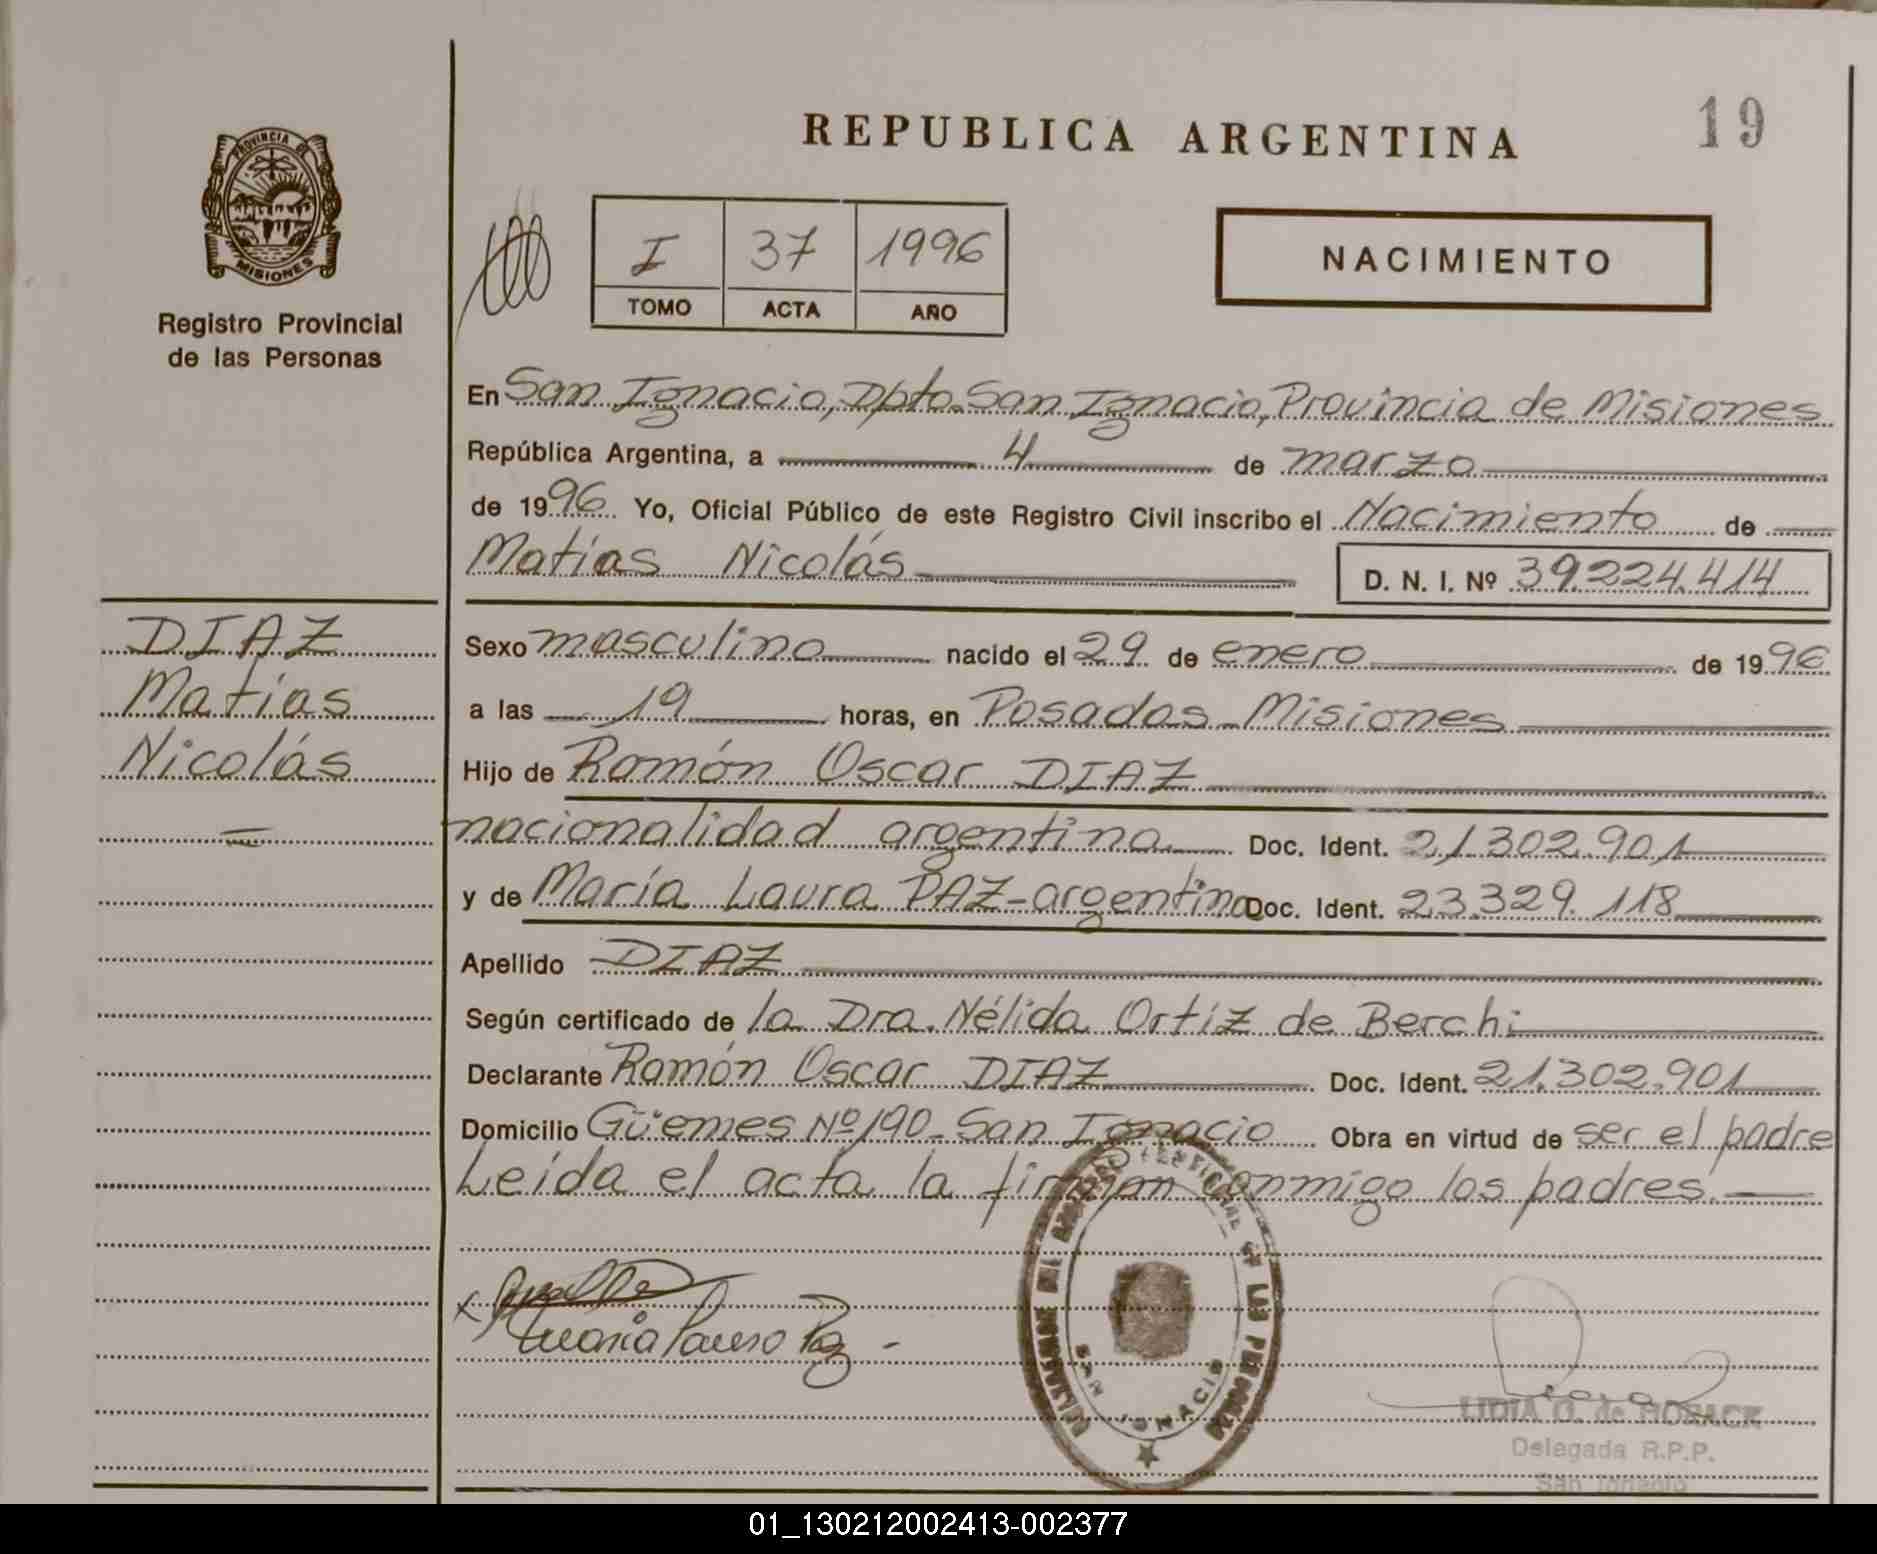 REPUBLICA ARGENTINA
19
PROVINCIA DE
MISIONES
Registro Provincial
de las Personas
I 37 1996
TOMO ACTA AÑO
NACIMIENTO
En San Ignacio, Dpto. San Ignacio, Provincia de Misiones
República Argentina, a 4 de marzo
de 1996 Yo, Oficial Público de este Registro Civil inscribo el Nacimiento de
Matías Nicolás D. N. I. Nº 39.224.414
DIAZ
Matías
Nicolás
Sexo masculino nacido el 29 de enero de 1996
a las 19 horas, en Posadas - Misiones
Hijo de Ramón Oscar DIAZ
nacionalidad argentina Doc. Ident. 21.302.901
y de María Laura PAZ - argentina Doc. Ident. 23.329.118
Apellido DIAZ
Según certificado de la Dra. Nélida Ortíz de Berchi
Declarante Ramón Oscar DIAZ Doc. Ident. 21.302.901
Domicilio Güemes Nº 190 - San Ignacio Obra en virtud de ser el padre
Leída el acta la firman conmigo los padres.
María Laura Paz
SAN IGNACIO
LIDIA G. de HORACK
Delegada R.P.P.
San Ignacio
01_130212002413-002377